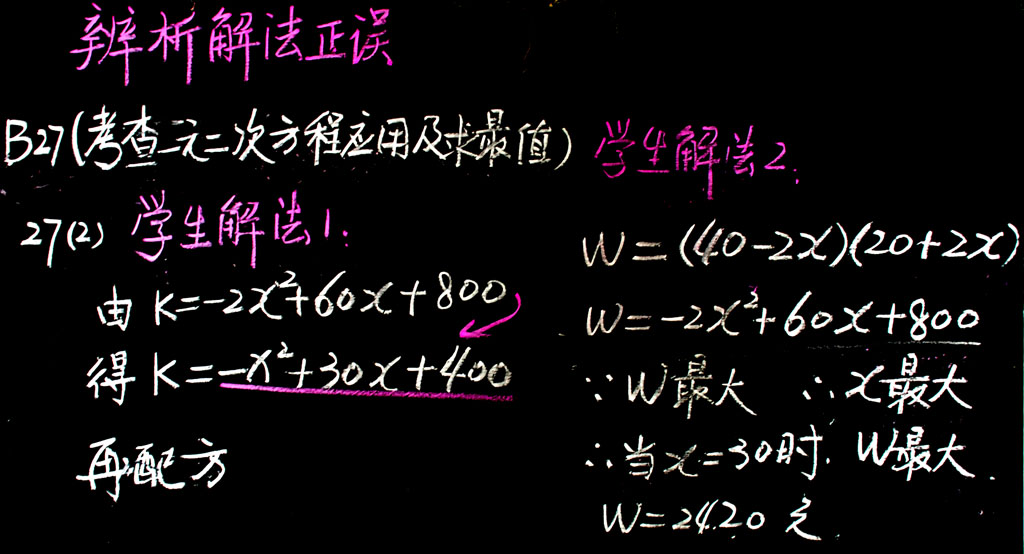 辨析解法正误
B27(考查一元二次方程应用及求最值)
27(2) 学生解法1:
由 K=-2x²+60x+800
得 K=-x²+30x+400
再配方
学生解法2:
W=(40-2x)(20+2x)
W=-2x²+60x+800
∵W最大 ∴x最大
∴当x=30时. W最大.
W=2420元